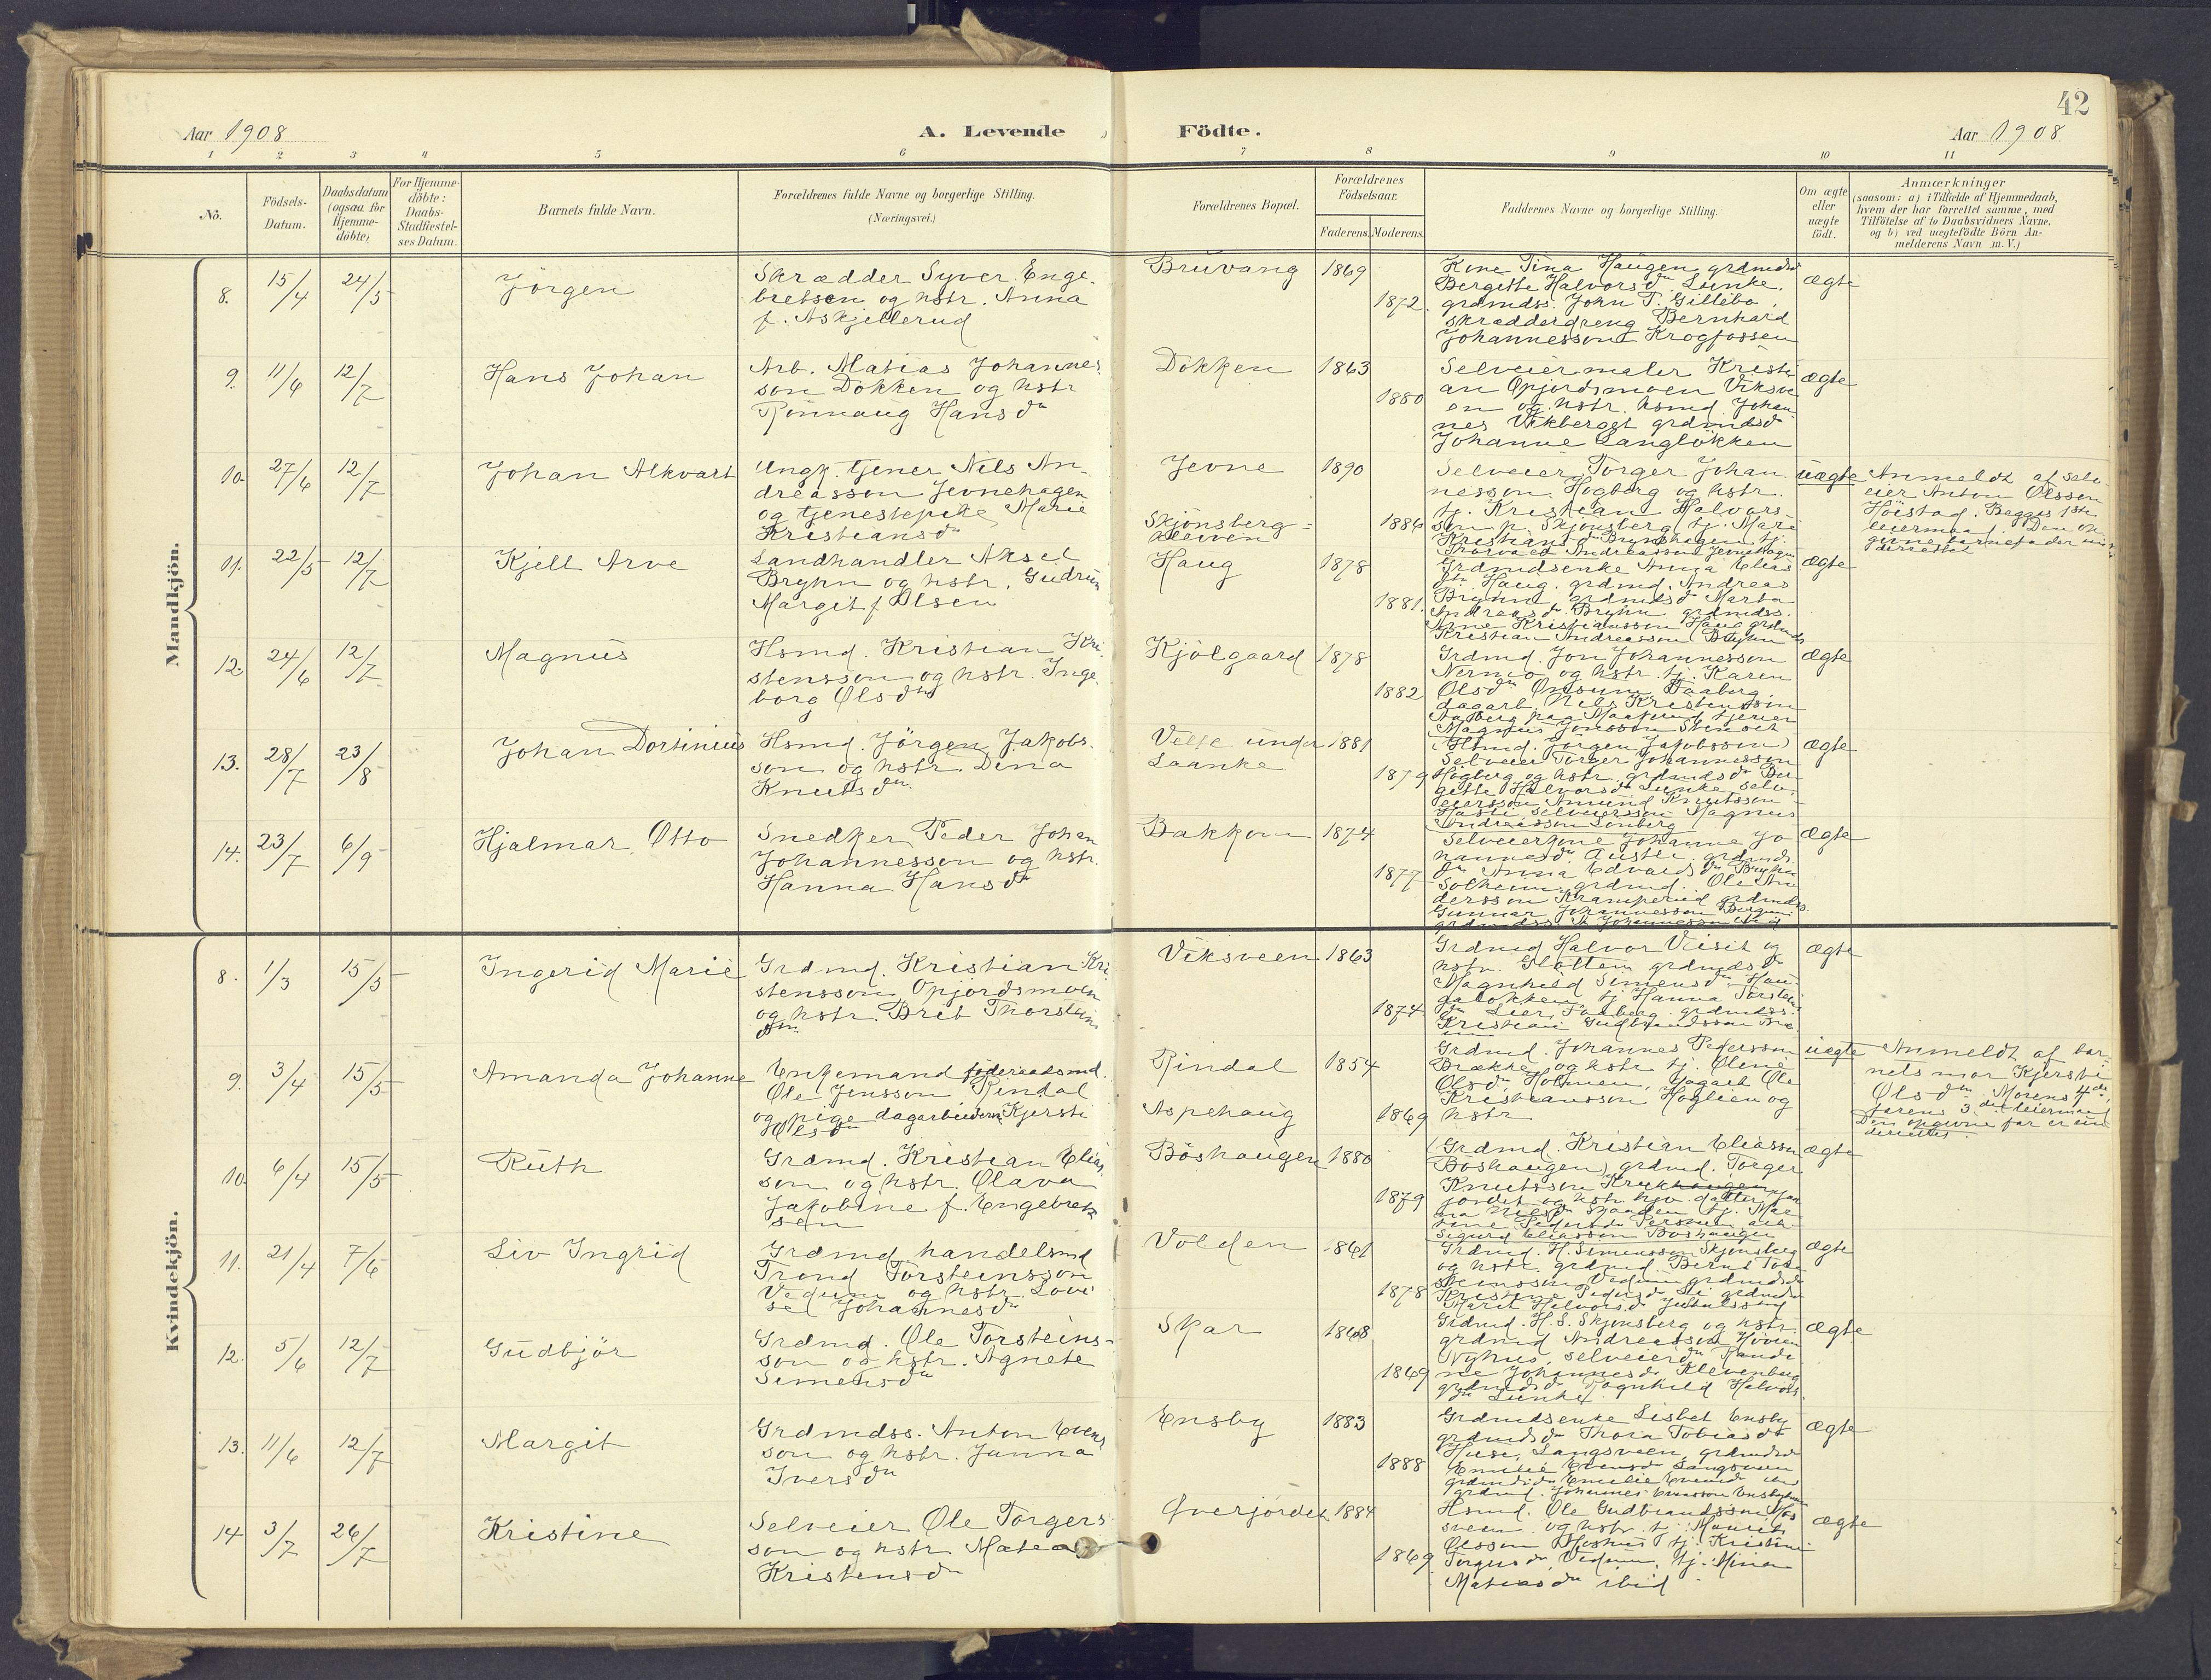 42
Aar 1908
A. Levende
Födte.
Aar 1908
1 2 3 4 5 6 7 8 9 10 11
No.
Födsels-
Datum.
Daabsdatum
(ogsaa for
Hjemme-
döbte)
For Hjemme-
döbte:
Daabs-
Stadfæstel-
ses Datum.
Barnets fulde Navn.
Forældrenes fulde Navne og borgerlige Stilling.
(Næringsvei.)
Forældrenes Bopæl.
Forældrenes
Födselsaar.
Faderens. Moderens.
Faddernes Navne og borgerlige Stilling.
Om ægte
eller
uægte
födt.
Anmærkninger
(saasom: a) i Tilfælde af Hjemmedaab,
hvem der har forrettet samme, med
Tilföielse af to Daabsvidners Navne.
og b) ved uægtefödte Börn An-
melderens Navn m.V.)
Mandkjön.
8. 15/4 24/5 Jörgen
Skrædder Syver Enge-
bretsen og hstr. Anna
f. Askjellerud
Bruvang 1869 1872.
Kone Tina Haugen grdmdsd
Bergitte Halvorsdn Lunke.
grdmdss. John T. Gillebo,
skrædderdreng Bernhard
Johannesson Krogfossen
ægte
9. 11/6 12/7 Hans Johan
Arb. Matias Johannes-
son Dokken og hstr
Rönnaug Hansdn
Dokken 1863 1880
Selveier maler Kristi
an Opjordsmoen Viksve
en og hstr. hsmd. Johan
nes Vikberget grdmdsd
Johanne Langlökken
ægte
10. 27/6 12/7 Johan Alkvart
Ungk. tjener Nils An-
dreasson Jevnehagen
og tjenestepike Marie
Kristiansdn
Jevne 1890
Skjönsberg=
kleiven 1886
Selveier Torger Johan
nesson Högberg og hstr.
tj. Kristian Halvors-
son p. Skjönsberg tj. Mari
Kristiansdn Brynshagen tj.
Thorvald Andreasson Jevnehagen
uægte
Anmeldt af selv-
eier Anton Olsson
Höistad. Begges 1ste
leiermaal. Den op-
givne barnefader un-
derrettet
11. 22/5 12/7 Kjell Arve
Landhandler Aksel
Bryhn og hstr. Gudrun
Margit f. Olsen
Haug 1878 1881.
Grdmdsenke Anna Elias
dn Haug. grdmd. Andreas
Bryhn grdmdsd Marta
Andreasdn Bryhn grdmdss.
Arne Kristiansson Haug grdmds
Kristian Andreasson Bryhn
ægte
12. 24/6 12/7 Magnus
Hsmd. Kristian Kri-
stensson og hstr. Inge-
borg Olsdn
Kjölgaard 1878 1882
Grdmd. Jon Johannesson
Nermo og hstr. tj. Karen
Olsdn Onsum Faaberg.
dagarb. Nils Kristensson
Magnus Jonsson
ægte
13. 28/7 23/8 Johan Dortinius
Hsmd. Jörgen Jakobs-
son og hstr. Dina
Knutsdn.
Velte under
Laanke 1881 1879
(Hsmd. Jörgen Jakobsson)
Selveier Torger Johannesson
Högberg og hstr. grdmdsdn Ber
gitte Halvorsdn Lunke, selv-
eiersson Amund Knutsson
selveiersson Magnus
Andreasson
ægte
14. 23/7 6/9 Hjalmar Otto
Snedker Peder Johan
Johannesson og hstr.
Hanna Hansdn
Bakkom 1874 1877
Selveierkone Johanne Jo
hannesdn Austli. grdmds
dn Anna Edvardsdn Bryhn
Solheim, grdmd. Ole An
dersson Kramperud grdmdss.
Gunnar Johannesson
ægte
Kvindekjön.
8. 1/3 15/5 Ingerid Marie
Grdmd. Kristian Kri-
stensson Opjordsmoen
og hstr. Brit Thorsteins
dn
Viksveen 1863 1874
Grdmd Halvor Veisit og
hstr. Slotten grdmdsdn
Magnhild Simensdn Hau-
galökken tj. Hanna Torsteins
dn Lier, Faaberg. grdmdss.
Kristian Gudbrandsson
ægte
9. 3/4 15/5 Amanda Johanne
Enkemand föderaadsmd.
Ole Jensson Rindal
og pige dagarbeiderske Kjersti
Olsdn
Rindal 1854
Aspehaug 1869
Grdmd. Johannes Pedersson
Brække og hstr. tj. Oline
Olsdn Holmen, dagarb Ole
Kristiansson Höglien og
hstr
uægte
Anmeldt af bar-
nets mor Kjersti
Olsdn. Morens 4de,
farens 3die leiermaal
Den opgivne far er un-
derrettet.
10. 6/4 15/5 Ruth
Grdmd. Kristian Elias-
son og hstr. Olava
Jakobine f. Engebret-
sen
Böshaugen 1880 1879
(Grdmd. Kristian Eliasson
Böshaugen) grdmd. Torger
Knutsson
jordet og hstr.
Sigurd Eliasson Böshaugen
ægte
11. 21/4 7/6 Liv Ingrid
Grdmd handelsmd
Trond Torsteinsson
Vedum og hstr. Lovi
se Johannesdn
Volden 1861 1878
Grdmd. H. Simensson Skjönsberg
og hstr. grdmd. Bernt Tor
steinsson Vedum grdmdsdn
Kristine Pedersdn Li grdmdsd
Marit Halvorsdn
ægte
12. 5/6 12/7 Gudbjör
Grdmd. Ole Torsteins-
son og hstr. Agnete
Simensdn
Skar 1868 1869
Grdmd. H. S. Skjönsberg og hstr.
grdmd Andreas
Nyhus, selveierdn Randi
ne Johannesdn Klevenberg
grdmdsdn Ragnhild Halvors
dn Lunke
ægte
13. 11/6 12/7 Margit
Grdmdss. Anton Evens
son og hstr. Janna
Iversdn
Ensby 1883 1888
Grdmdsenke Lisbet Ensby
grdmdsdn Thora Tobiasdn
Huse, Langsveen, grdmdsdn
Emilie Evensdn Langsveen
grdmdsdn Emelie Evensdn
grdmd. Johannes Evensson
ægte
14. 3/7 26/7 Kristine
Selveier Ole Torgers-
son og hstr. Matea
Kristensdn
Qverjordet 1884 1869
Hsmd. Ole Gudbrandsson Mos
sveen og hstr. tj. Maurits
Olsson tj. Kristine
Torgersdn Vedum, tj. Mina
Matiasdn ibid
ægte